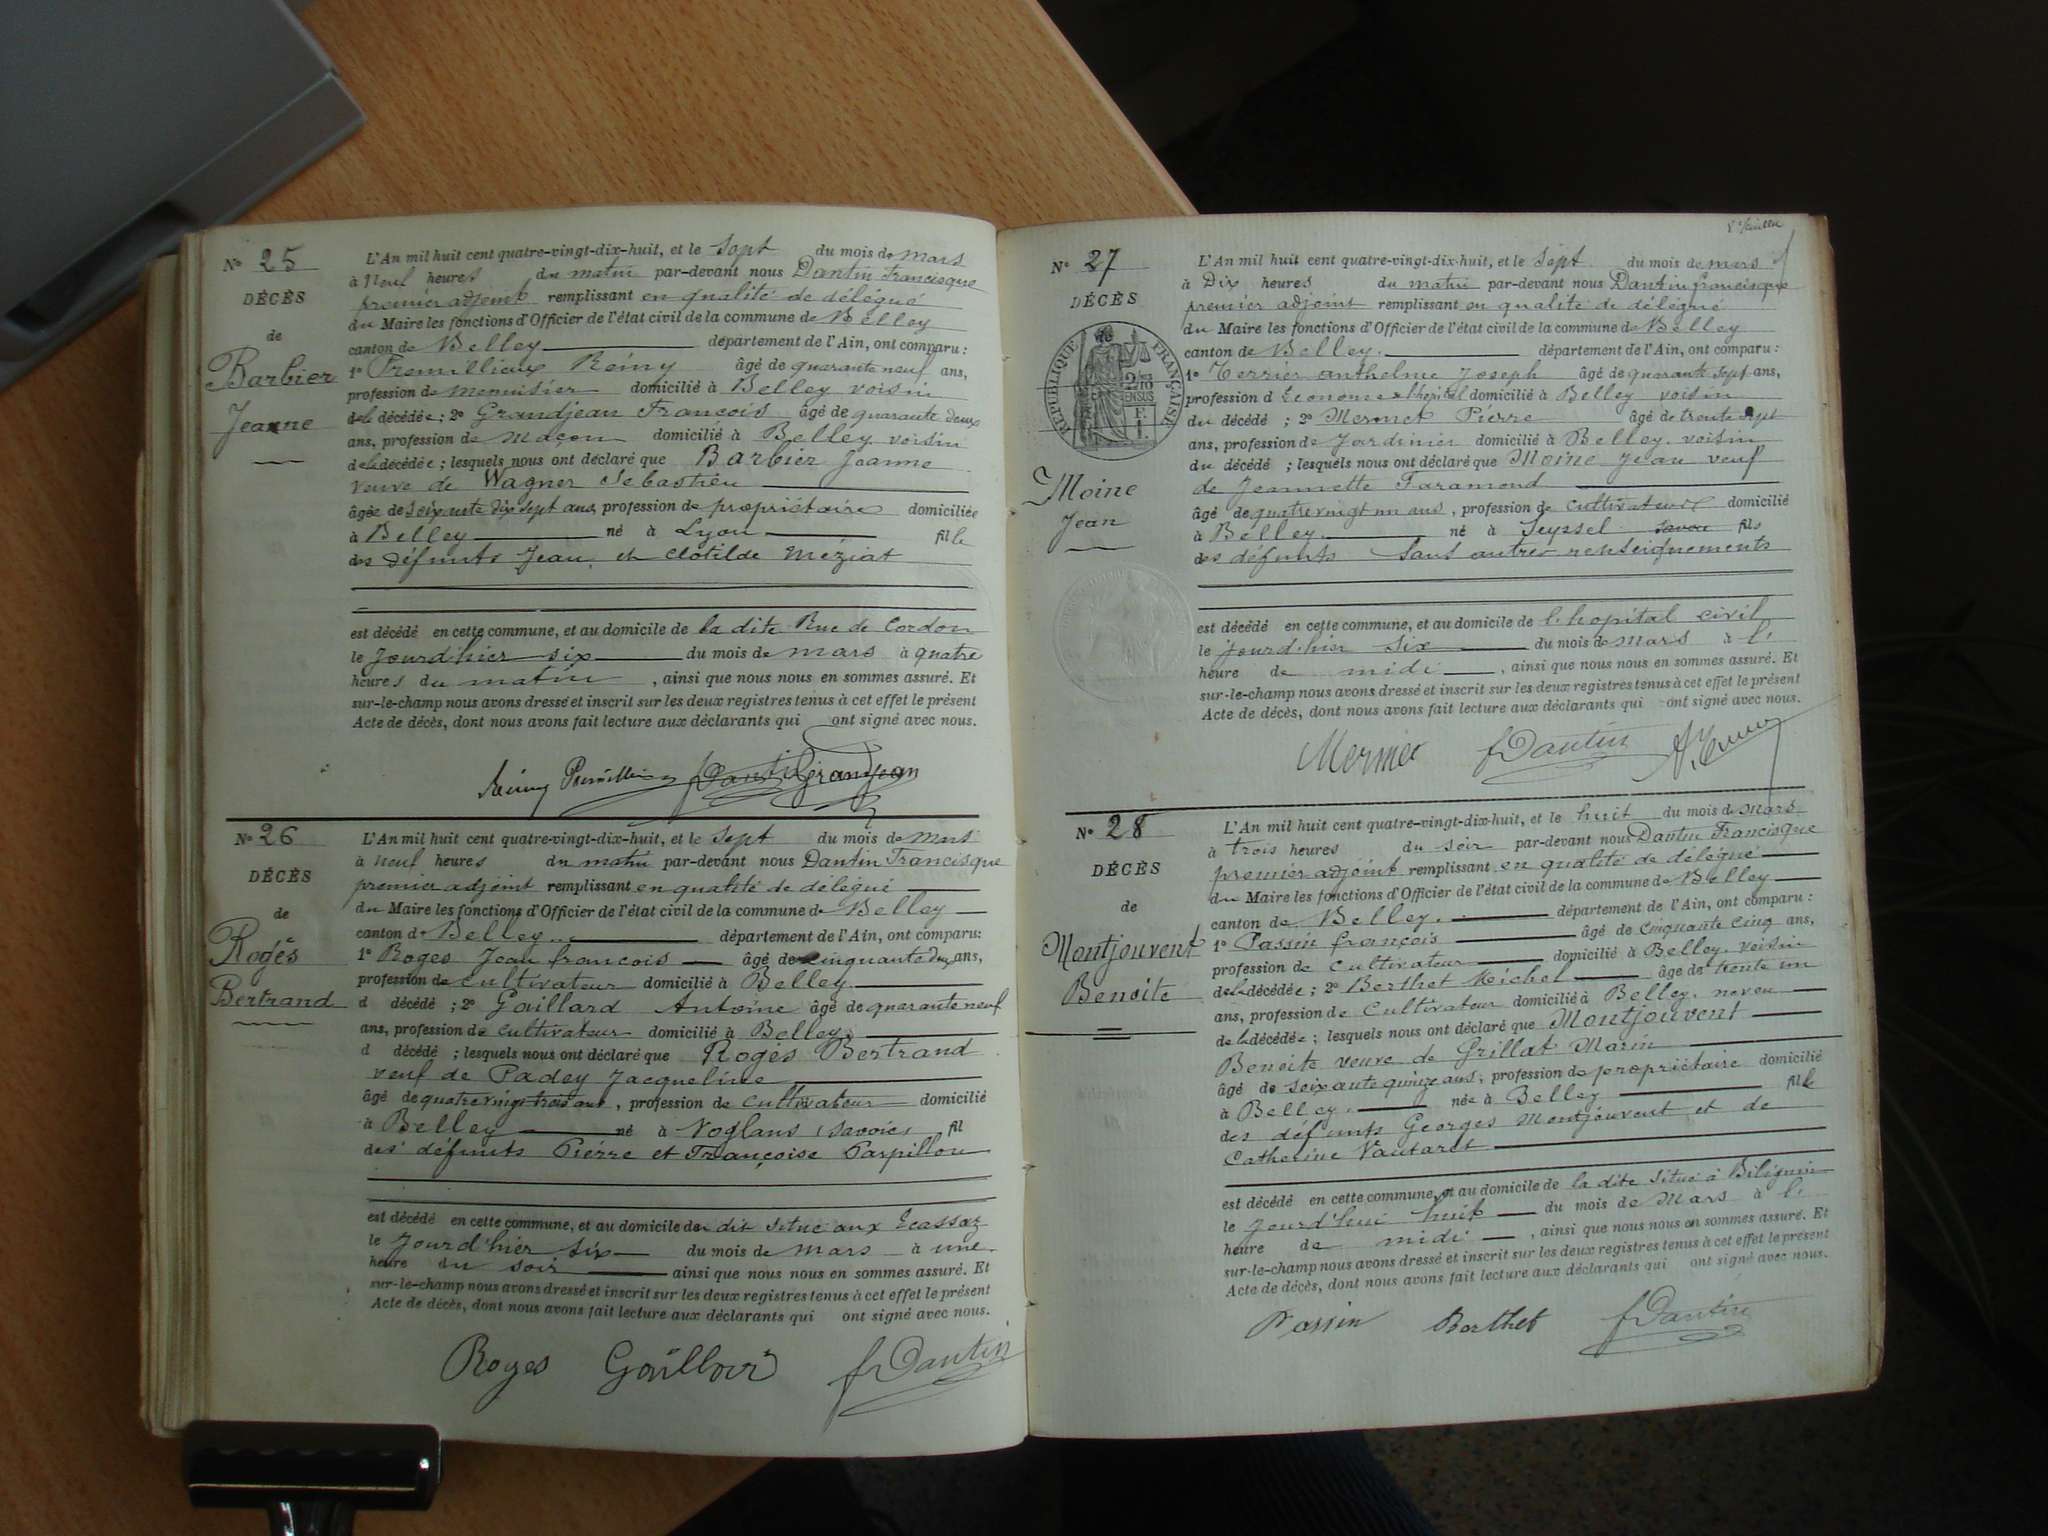 N° 25
DÉCÈS
de
Barbier
Jeanne
L'An mil huit cent quatre-vingt-dix-huit, et le Sept du mois de mars
à Neuf heures du matin par-devant nous Dantin Francisque
premier adjoint remplissant en qualité de délégué
du Maire les fonctions d'Officier de l'état civil de la commune de Belley
canton de Belley département de l'Ain, ont comparu :
1° Tremillieux Rémy âgé de quarante neuf ans,
profession de menuisier domicilié à Belley voisin
de la décédée ; 2° Grandjean François âgé de quarante deux
ans, profession de maçon domicilié à Belley voisin
de la décédée ; lesquels nous ont déclaré que Barbier Jeanne
veuve de Wagner Sébastien
âgée de soixante dix sept ans, profession de propriétaire domiciliée
à Belley né à Lyon fille
des défunts Jean et Clotilde Méziat
est décédé en cette commune, et au domicile de la dite Rue de Cordon
le jourd'hier six du mois de mars à quatre
heures du matin, ainsi que nous nous en sommes assuré. Et
sur-le-champ nous avons dressé et inscrit sur les deux registres tenus à cet effet le présent
Acte de décès, dont nous avons fait lecture aux déclarants qui ont signé avec nous.
Rémy fDantin Grandjean
N° 26
DÉCÈS
de
Rogès
Bertrand
L'An mil huit cent quatre-vingt-dix-huit, et le Sept du mois de mars
à neuf heures du matin par-devant nous Dantin Francisque
premier adjoint remplissant en qualité de délégué
du Maire les fonctions d'Officier de l'état civil de la commune de Belley
canton de Belley département de l'Ain, ont comparu:
1° Roges Jean françois âgé de cinquante deux ans,
profession de cultivateur domicilié à Belley
d décédé ; 2° Gaillard Antoine âgé de quarante neuf
ans, profession de cultivateur domicilié à Belley
d décédé ; lesquels nous ont déclaré que Rogès Bertrand
veuf de Padey Jacqueline
âgé de quatre vingt trois ans, profession de cultivateur domicilié
à Belley né à Voglans (Savoie) fil
des défunts Pierre et Françoise Parpillon
est décédé en cette commune, et au domicile du dit situé aux Ecassaz
le jourd'hier six du mois de mars à une
heure du soir ainsi que nous nous en sommes assuré. Et
sur-le-champ nous avons dressé et inscrit sur les deux registres tenus à cet effet le présent
Acte de décès, dont nous avons fait lecture aux déclarants qui ont signé avec nous.
Roges Gaillard fDantin
N° 27
DÉCÈS
RÉPUBLIQUE FRANÇAISE
Moine
Jean
L'An mil huit cent quatre-vingt-dix-huit, et le Sept du mois de mars
à Dix heures du matin par-devant nous Dantin francisque
premier adjoint remplissant en qualité de délégué
du Maire les fonctions d'Officier de l'état civil de la commune de Belley
canton de Belley. département de l'Ain, ont comparu :
1° Terrier anthelme Joseph âgé de quarante sept ans,
profession d Econome à l'hopital domicilié à Belley voisin
du décédé ; 2° Mermet Pierre âgé de trente sept
ans, profession de Jardinier domicilié à Belley. voisin
du décédé ; lesquels nous ont déclaré que Moine Jean veuf
de Jeannette Faramond
âgé de quatre vingt un ans, profession de cultivateur domicilié
à Belley. né à Seyssel Savoie fils
des défunts Sans autres renseignements
est décédé en cette commune, et au domicile de l'hopital civil
le jourd'hier six du mois de mars à l'
heure de midi, ainsi que nous nous en sommes assuré. Et
sur-le-champ nous avons dressé et inscrit sur les deux registres tenus à cet effet le présent
Acte de décès, dont nous avons fait lecture aux déclarants qui ont signé avec nous.
Mermet fDantin
N° 28
DÉCÈS
de
Montjouvent
Benoite
L'An mil huit cent quatre-vingt-dix-huit, et le huit du mois de mars
à trois heures du soir par-devant nous Dantin Francisque
premier adjoint remplissant en qualité de délégué
du Maire les fonctions d'Officier de l'état civil de la commune de Belley
canton de Belley. département de l'Ain, ont comparu :
1° Passin françois âgé de cinquante cinq ans,
profession de cultivateur domicilié à Belley. voisin
de la décédée ; 2° Berthet Michel âgé de trente un
ans, profession de cultivateur domicilié à Belley. neveu
de la décédée ; lesquels nous ont déclaré que Montjouvent
Benoite veuve de Grillat Marin
âgé de soixante quinze ans, profession de propriétaire domicilié
à Belley. née à Belley fille
des défunts Georges Montjouvent et de
Catherine Vautaret
est décédé en cette commune, et au domicile de la dite situé à Billignin
le jourd'hui huit du mois de Mars à l'
heure de midi, ainsi que nous nous en sommes assuré. Et
sur-le-champ nous avons dressé et inscrit sur les deux registres tenus à cet effet le présent
Acte de décès, dont nous avons fait lecture aux déclarants qui ont signé avec nous.
Passin Berthet fDantin